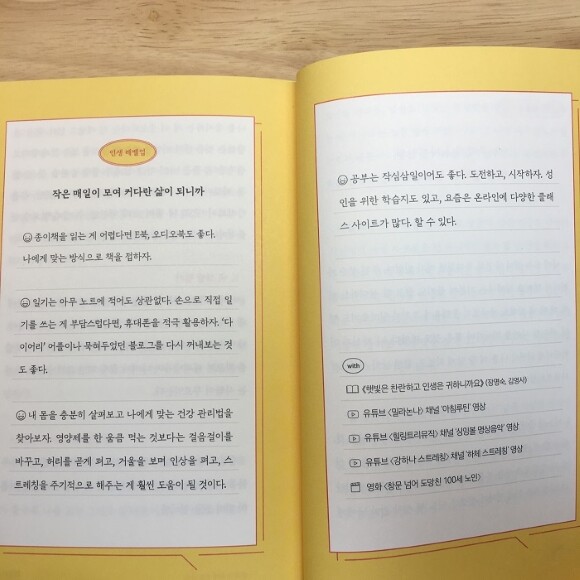 인생 레벨업
작은 매일이 모여 커다란 삶이 되니까
종이책을 읽는 게 어렵다면 E북, 오디오북도 좋다.
나에게 맞는 방식으로 책을 접하자.
일기는 아무 노트에 적어도 상관없다. 손으로 직접 일
기를 쓰는 게 부담스럽다면, 휴대폰을 적극 활용하자. '다
이어리' 어플이나 묵혀두었던 블로그를 다시 꺼내보는 것
도 좋다.
내 몸을 충분히 살펴보고 나에게 맞는 건강 관리법을
찾아보자. 영양제를 한 움큼 먹는 것보다는 걸음걸이를
바꾸고, 허리를 곧게 펴고, 거울을 보며 인상을 펴고, 스
트레칭을 주기적으로 해주는 게 훨씬 도움이 될 것이다.
공부는 작심삼일이어도 좋다. 도전하고, 시작하자. 성
인을 위한 학습지도 있고, 요즘은 온라인에 다양한 클래
스 사이트가 많다. 할 수 있다.
with
《햇빛은 찬란하고 인생은 귀하니까요》 (장명숙, 김영사)
유튜브 <밀라논나> 채널 '아침루틴' 영상
유튜브 <힐링트리뮤직> 채널 '싱잉볼 명상음악' 영상
유튜브 <강하나 스트레칭> 채널 '하체 스트레칭' 영상
영화 <창문 넘어 도망친 100세 노인>